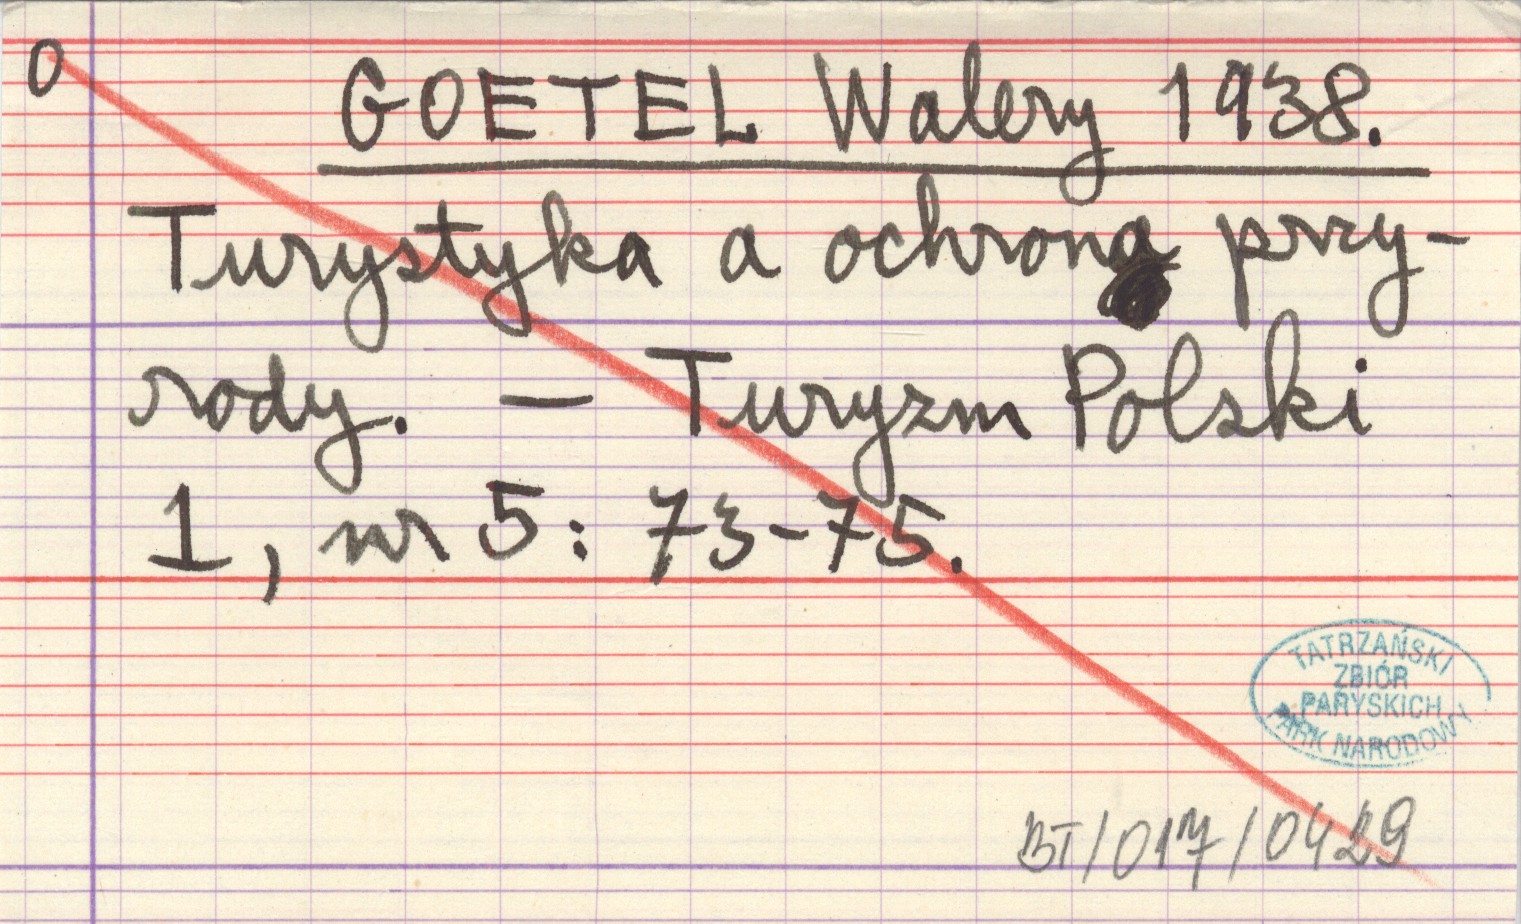 O
GOETEL Walery 1938.
Turystyka a ochrona przy-
rody. — Turyzm Polski
1, nr 5: 73-75.
TATRZAŃSKI
ZBIÓR
PARYSKICH
PARK NARODOWY
BT/017/0429